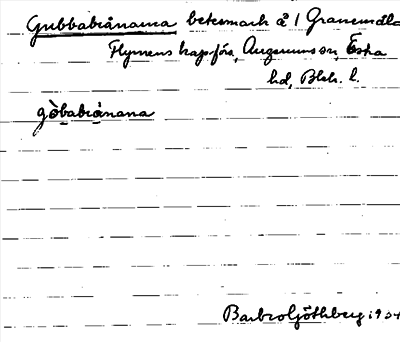 Gubbabränarna betesmark å 1 Granemåla
Flymens kapsförs, Augerums sn, Östra
hd, Blek. l.
gòbabränana
Barbro Göthberg 1934